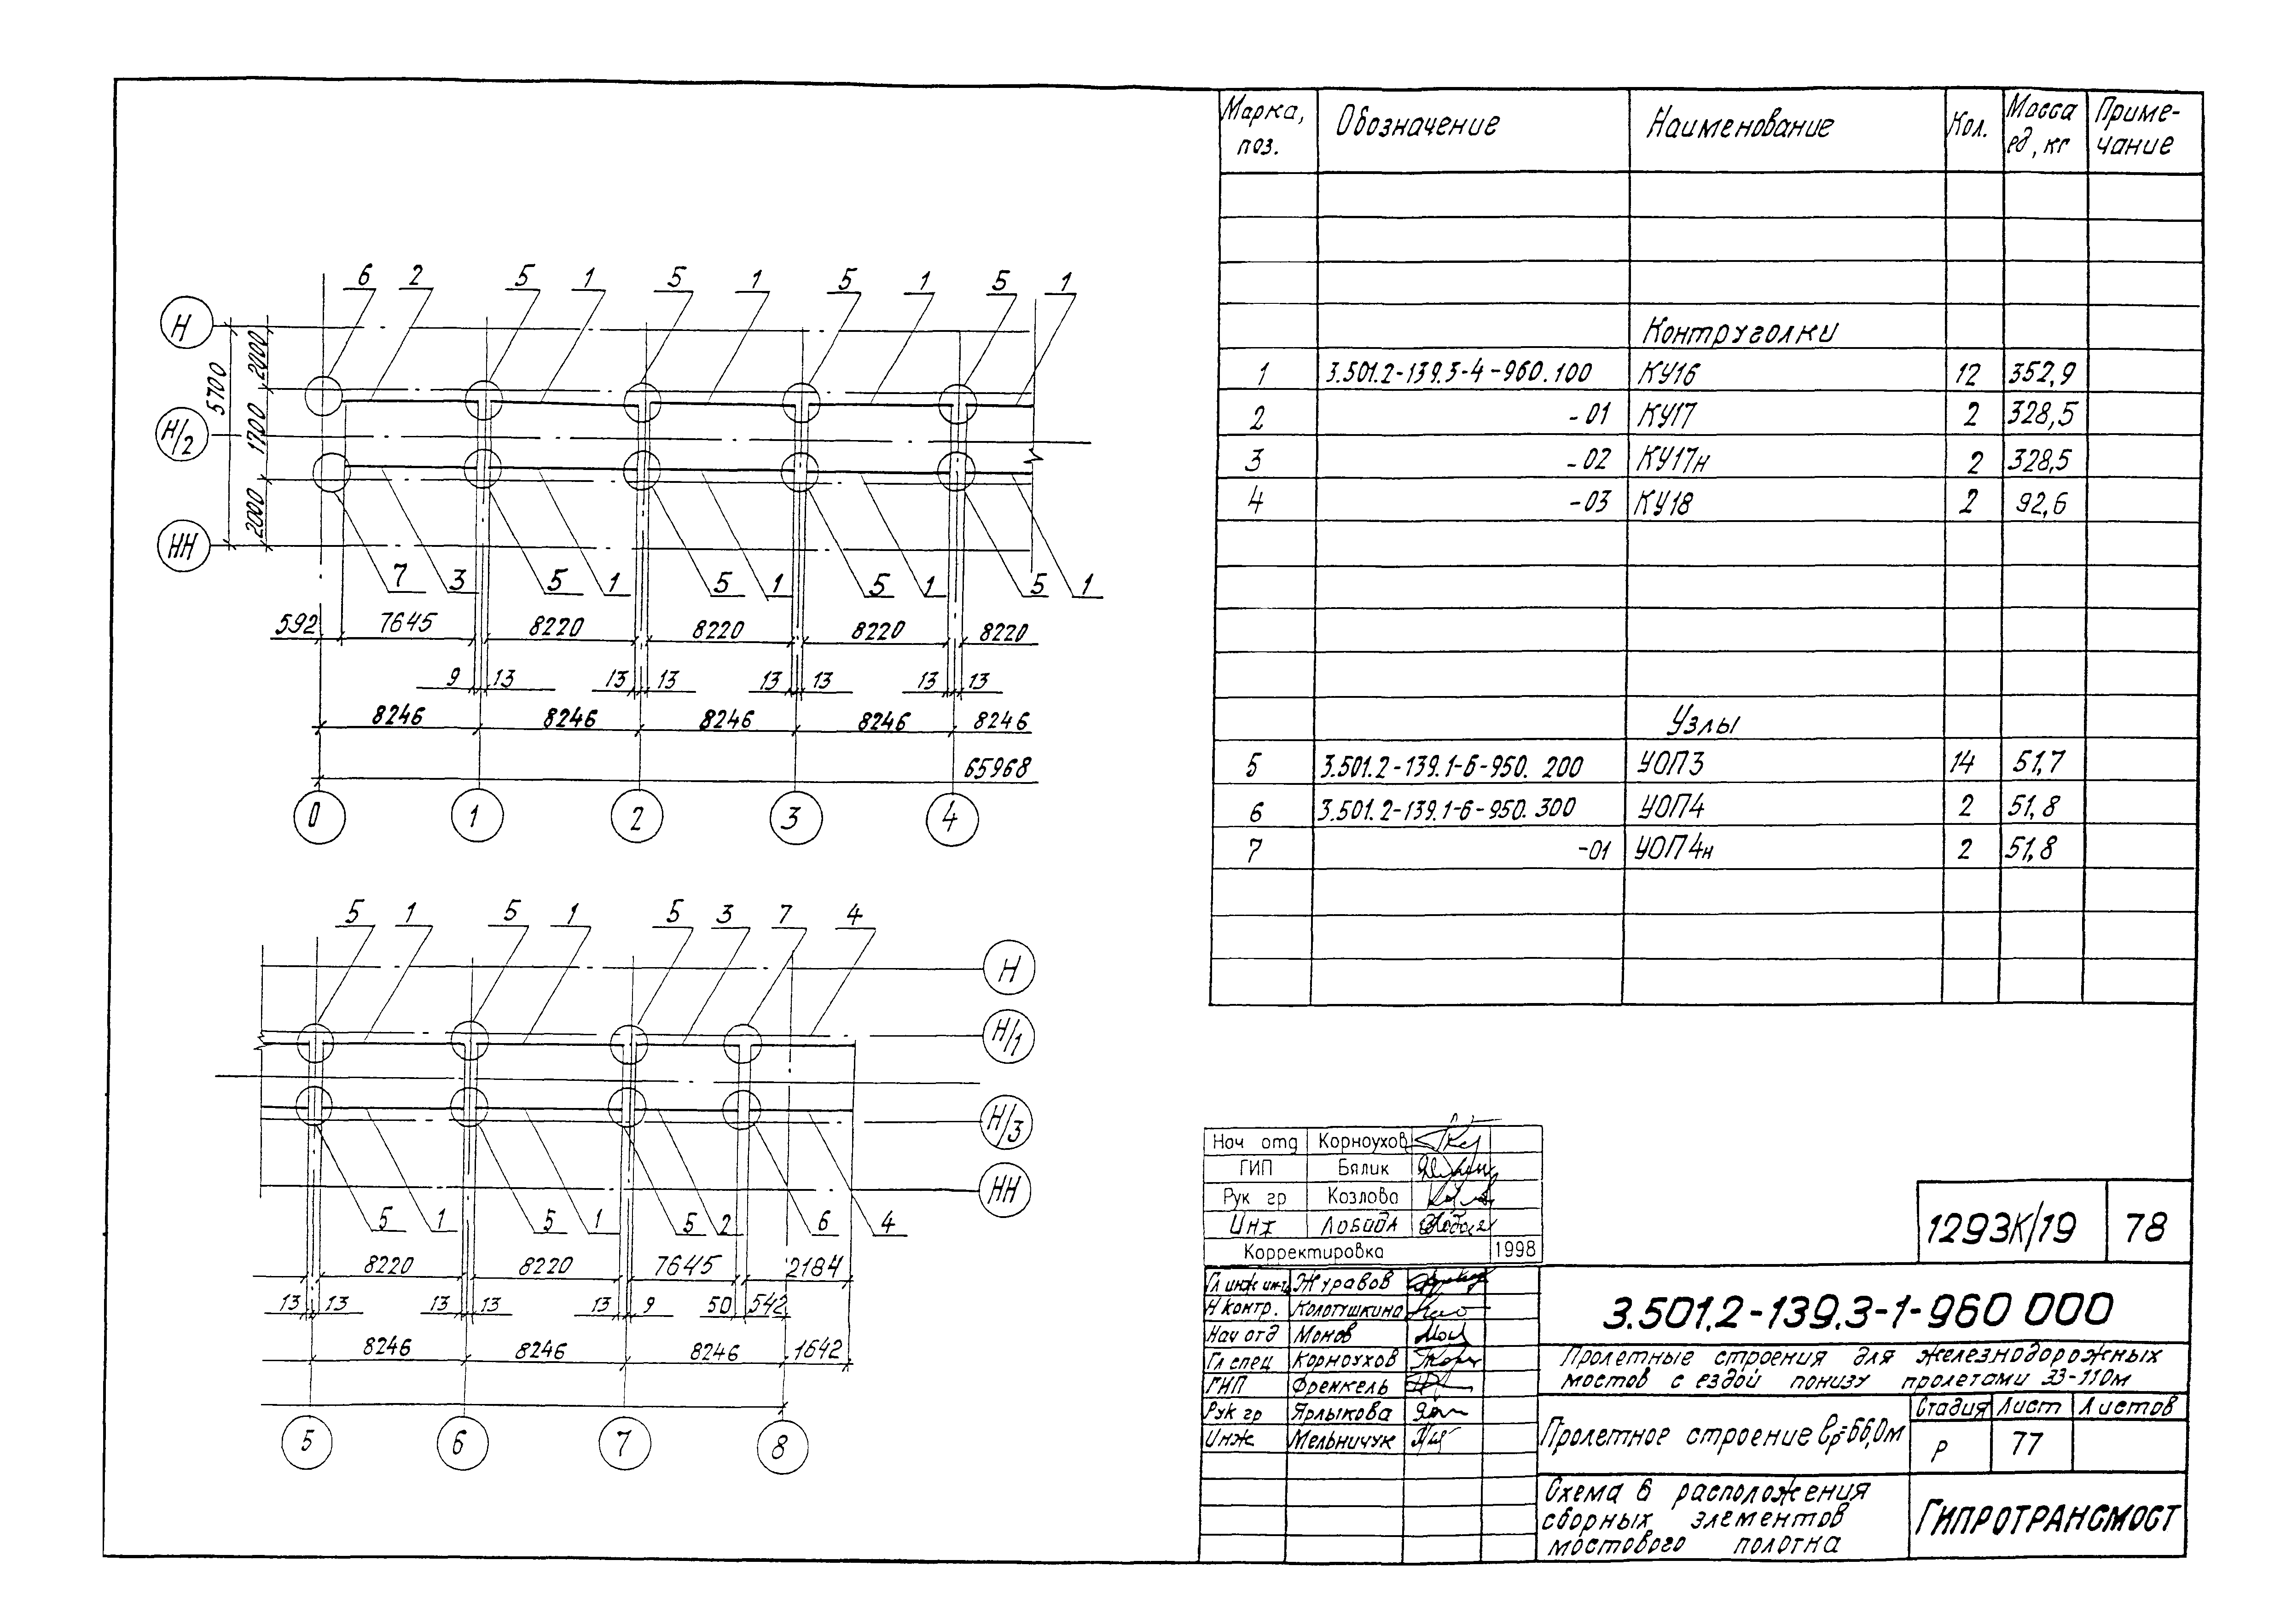 6 2 5 1 5 1 5 1 5 1
Н
Н/2
НН
5700
2000
1700
2000
7 3 5 1 5 1 5 1 5 1
592 7645 8220 8220 8220 8220
9 13 13 13 13 13 13 13
8246 8246 8246 8246 8246
65968
0 1 2 3 4
5 1 5 1 5 3 7 4
Н
Н/1
Н/3
НН
5 1 5 1 5 2 6 4
8220 8220 7645 2184
13 13 13 13 13 9 50 542
8246 8246 8246 1642
5 6 7 8
Марка, поз. Обозначение Наименование Кол. Масса ед, кг Приме-чание
Контруголки
1 3.501.2-139.3-4-960.100 КУ16 12 352,9
2 -01 КУ17 2 328,5
3 -02 КУ17н 2 328,5
4 -03 КУ18 2 92,6
Узлы
5 3.501.2-139.1-6-950. 200 УОП3 14 51,7
6 3.501.2-139.1-6-950. 300 УОП4 2 51,8
7 -01 УОП4н 2 51,8
Нач отд Корноухов
ГИП Бялик
Рук гр Козлова
Инж Лобида
Корректировка 1998
Гл инж инт Журавов
Н контр. Колотушкина
Нач отд Монов
Гл спец Корноухов
ГИП Френкель
Рук гр Ярлыкова
Инж Мельничук
1293К/19 78
3.501.2-139.3-1-960 000
Пролетные строения для железнодорожных
мостов с ездой понизу пролетами 33-110м
Пролетное строение lр=66,0м
Стадия Лист Листов
Р 77
Схема 6 расположения
сборных элементов
мостового полотна
ГИПРОТРАНСМОСТ